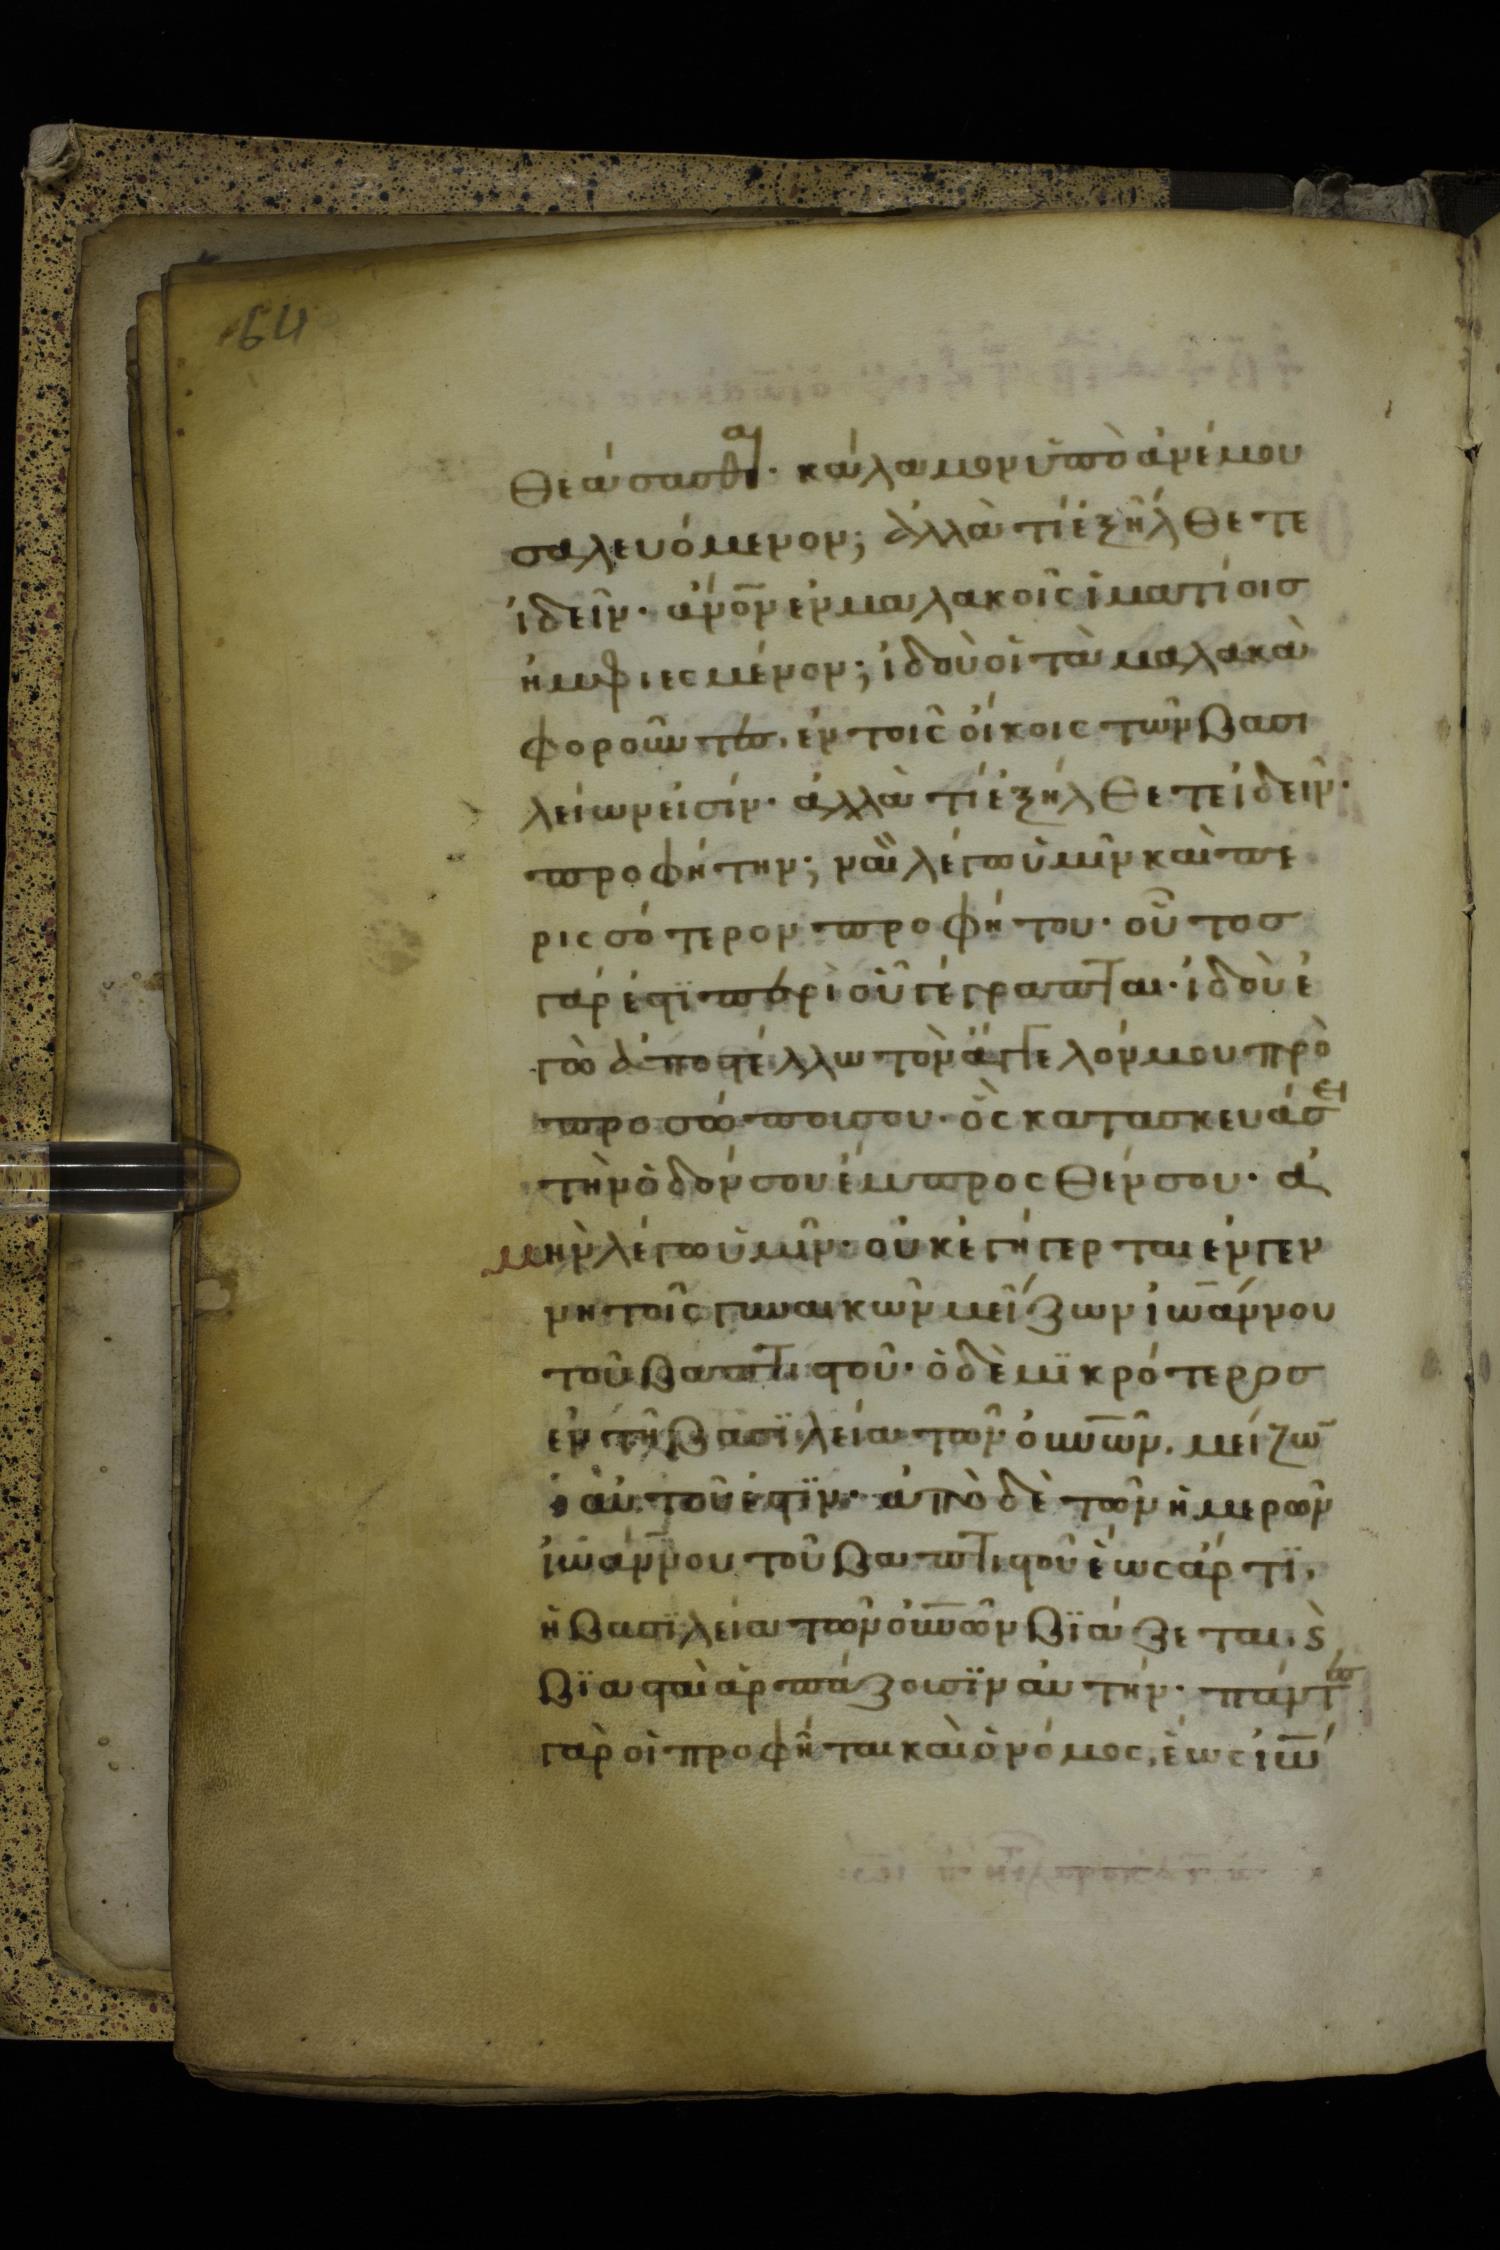 64
θεάσασθαι· κάλαμον ὑπὸ ἀνέμου
σαλευόμενον; ἀλλὰ τί ἐξήλθετε
ἰδεῖν· ἄνο̅ν ἐν μαλακοῖς ἱματίοις
ἠμφιεσμένον; ἰδοὺ οἱ τὰ μαλακὰ
φοροῦντες, ἐν τοῖς οἴκοις τῶν βασι
λείων εἰσίν· ἀλλὰ τί ἐξήλθετε ἰδεῖν·
προφήτην; ναῒ λέγω ὑμῖν καὶ πε
ρισσότερον προφήτου· οὗτος
γάρ ἐστϊ περὶ οὗ γέγραπται· ἰδοὺ ἐ
γὼ ἀποστέλλω τὸν ἄγγελόν μου πρὸ
προσώπου σου· ὃς κατασκευάσει
τὴν ὁδόν σου ἔμπροσθέν σου· ἀ
μὴν λέγω ὑμῖν· οὐκ ἐγήγερται ἐν γεν
νητοῖς γυναικῶν μείζων ἰω̅άννου
τοῦ βαπτιστοῦ· ὁ δὲ μϊκρότερος
ἐν τῇ βασϊλεία τῶν οὐν̅ῶν, μείζω̅
αὐτοῦ ἐστϊν· ἀπὸ δὲ τῶν ἡμερῶν
ἰωάννου τοῦ βαπτιστοῦ ἕως ἄρτϊ,
ἡ βασϊλεία τῶν οὐν̅ῶν βϊάζεται, ϛ̀
βϊασταὶ ἁρπάζουσϊν αὐτήν· πάντες
γὰρ οἱ προφῆται καὶ ὁ νόμος, ἕως ἰω̅